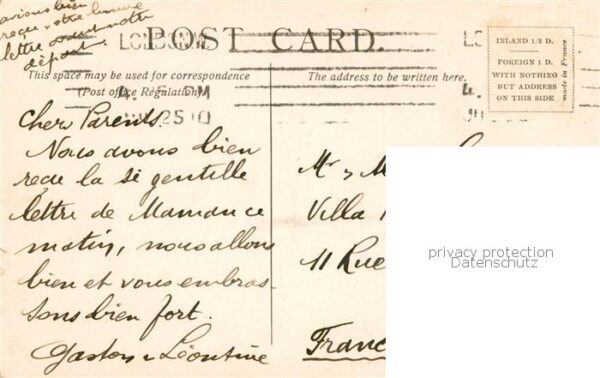 avions bien
reçu votre bonne
lettre avant notre
départ.
POST CARD.
LONDON
INLAND 1/2 D.
FOREIGN 1 D.
WITH NOTHING
BUT ADDRESS
ON THIS SIDE
made in France
This space may be used for correspondence
(Post office Regulation)
The address to be written here.
4. PM
25 10
4.
Cher Parents
Nous avons bien
reçu la si gentille
lettre de Maman ce
matin, nous allons
bien et vous embras-
sons bien fort.
Gaston & Léontine
Mr & M
Villa
11 Rue
Franc
privacy protection
Datenschutz